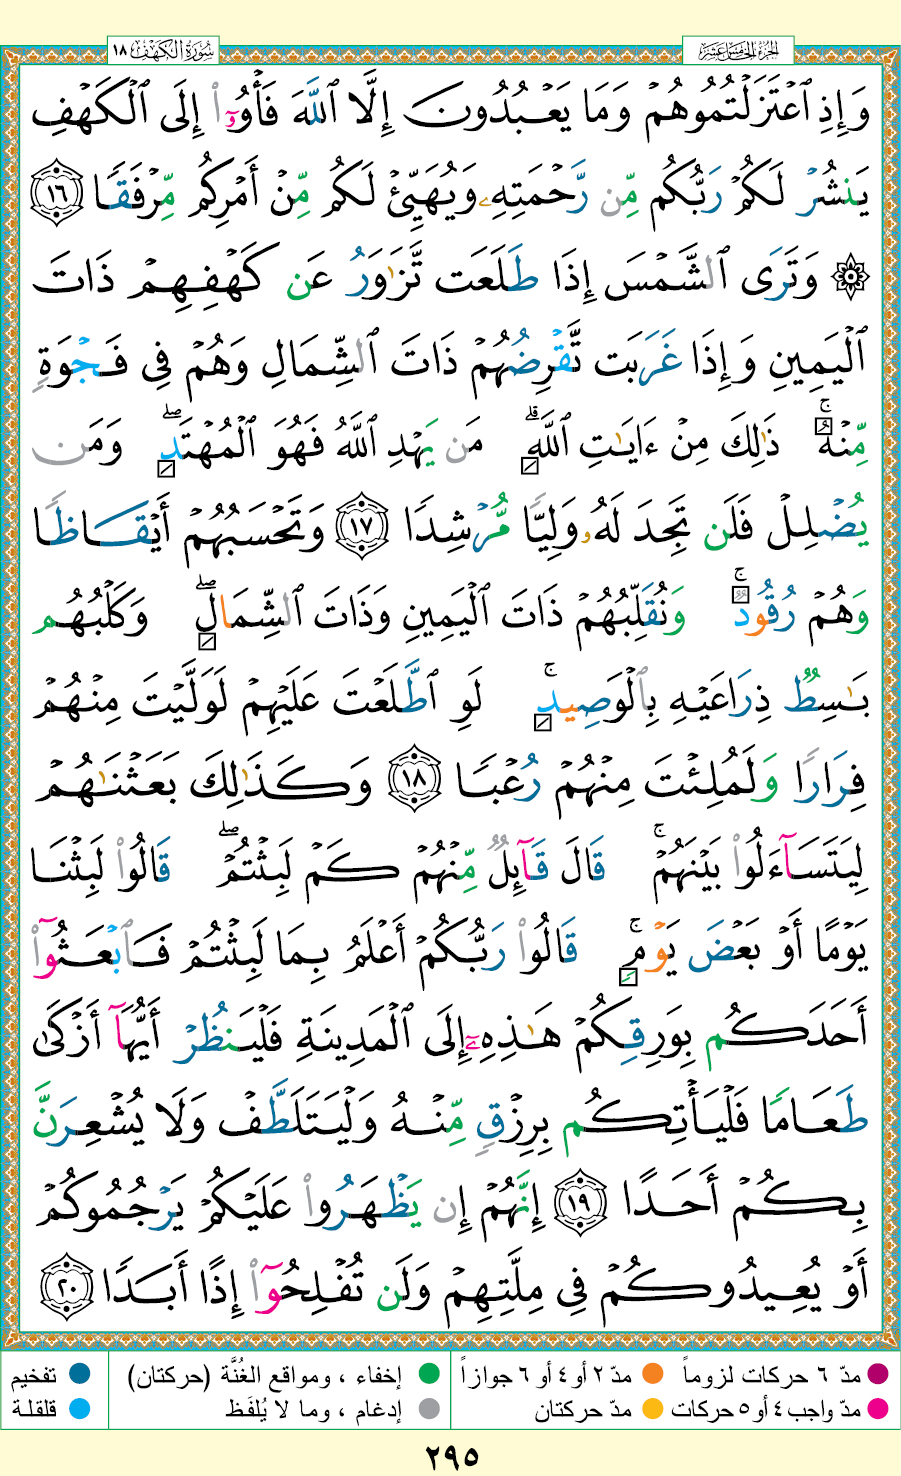 الجزء الخامس عشر
سورة الكهف ١٨
وَإِذِ ٱعْتَزَلْتُمُوهُمْ وَمَا يَعْبُدُونَ إِلَّا ٱللَّهَ فَأْوُۥٓا۟ إِلَى ٱلْكَهْفِ
يَنشُرْ لَكُمْ رَبُّكُم مِّن رَّحْمَتِهِۦ وَيُهَيِّئْ لَكُم مِّنْ أَمْرِكُم مِّرْفَقًا ١٦
۞ وَتَرَى ٱلشَّمْسَ إِذَا طَلَعَت تَّزَٰوَرُ عَن كَهْفِهِمْ ذَاتَ
ٱلْيَمِينِ وَإِذَا غَرَبَت تَّقْرِضُهُمْ ذَاتَ ٱلشِّمَالِ وَهُمْ فِى فَجْوَةٍ
مِّنْهُ ۚ ذَٰلِكَ مِنْ ءَايَٰتِ ٱللَّهِ ۗ مَن يَهْدِ ٱللَّهُ فَهُوَ ٱلْمُهْتَدِ ۖ وَمَن
يُضْلِلْ فَلَن تَجِدَ لَهُۥ وَلِيًّا مُّرْشِدًا ١٧ وَتَحْسَبُهُمْ أَيْقَاظًا
وَهُمْ رُقُودٌ ۚ وَنُقَلِّبُهُمْ ذَاتَ ٱلْيَمِينِ وَذَاتَ ٱلشِّمَالِ ۖ وَكَلْبُهُم
بَٰسِطٌ ذِرَاعَيْهِ بِٱلْوَصِيدِ ۚ لَوِ ٱطَّلَعْتَ عَلَيْهِمْ لَوَلَّيْتَ مِنْهُمْ
فِرَارًا وَلَمُلِئْتَ مِنْهُمْ رُعْبًا ١٨ وَكَذَٰلِكَ بَعَثْنَٰهُمْ
لِيَتَسَآءَلُوا۟ بَيْنَهُمْ ۚ قَالَ قَآئِلٌ مِّنْهُمْ كَمْ لَبِثْتُمْ ۖ قَالُوا۟ لَبِثْنَا
يَوْمًا أَوْ بَعْضَ يَوْمٍ ۚ قَالُوا۟ رَبُّكُمْ أَعْلَمُ بِمَا لَبِثْتُمْ فَٱبْعَثُوٓا۟
أَحَدَكُم بِوَرِقِكُمْ هَٰذِهِۦٓ إِلَى ٱلْمَدِينَةِ فَلْيَنظُرْ أَيُّهَآ أَزْكَىٰ
طَعَامًا فَلْيَأْتِكُم بِرِزْقٍ مِّنْهُ وَلْيَتَلَطَّفْ وَلَا يُشْعِرَنَّ
بِكُمْ أَحَدًا ١٩ إِنَّهُمْ إِن يَظْهَرُوا۟ عَلَيْكُمْ يَرْجُمُوكُمْ
أَوْ يُعِيدُوكُمْ فِى مِلَّتِهِمْ وَلَن تُفْلِحُوٓا۟ إِذًا أَبَدًا ٢٠
مدّ ٦ حركات لزوماً مدّ ٢ أو ٤ أو ٦ جوازاً إخفاء ، ومواقع الغُنَّة (حركتان) تفخيم
مدّ واجب ٤ أو ٥ حركات مدّ حركتان إدغام ، وما لا يُلفَظ قلقلة
٢٩٥